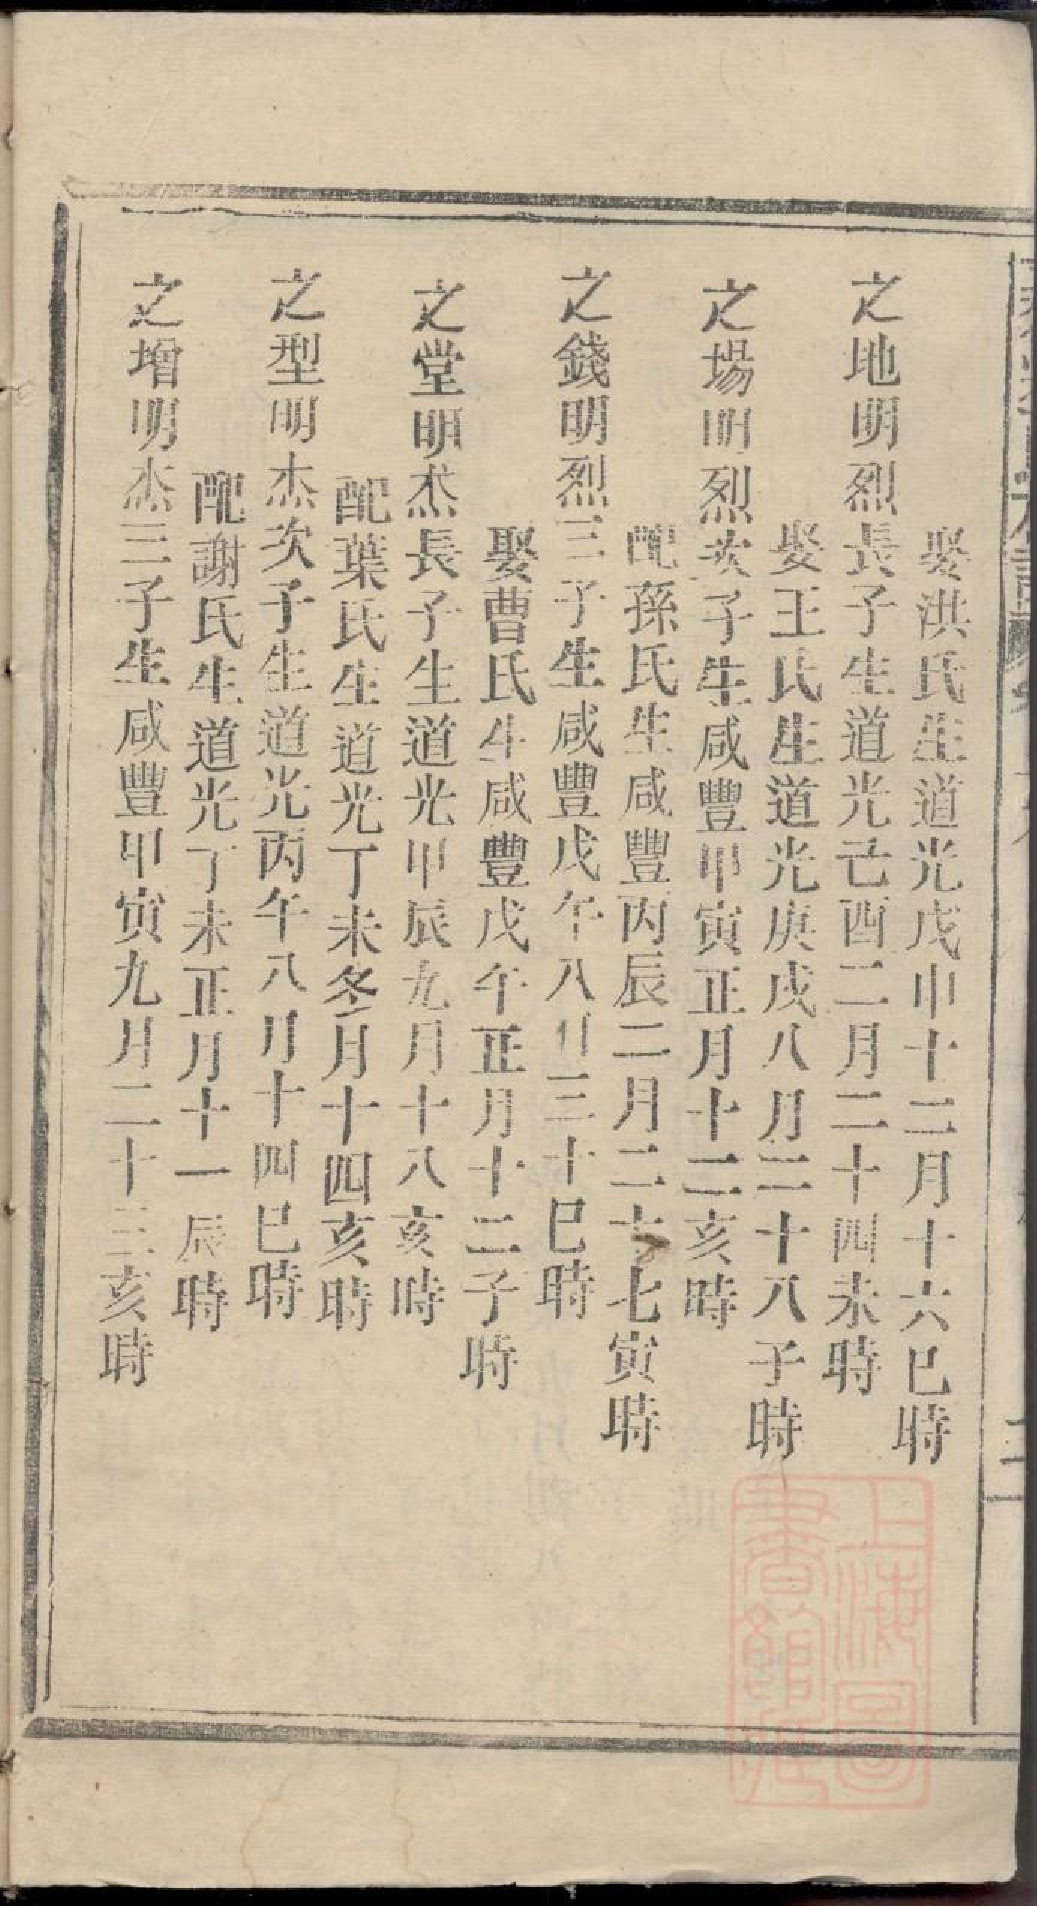 娶洪氏生道光戊申十二月十六巳時
之地明烈長子生道光己酉二月二十四未時
娶王氏生道光庚戌八月二十八子時
之場明烈次子生咸豐甲寅正月十二亥時
配孫氏生咸豐丙辰二月二十七寅時
之錢明烈三子生咸豐戊午八月三十巳時
娶曹氏生咸豐戊午正月十二子時
之堂明杰長子生道光甲辰九月十八亥時
配葉氏生道光丁未冬月十四亥時
之型明杰次子生道光丙午八月十四巳時
配謝氏生道光丁未正月十一辰時
之增明杰三子生咸豐甲寅九月二十三亥時
上海圖
書館藏